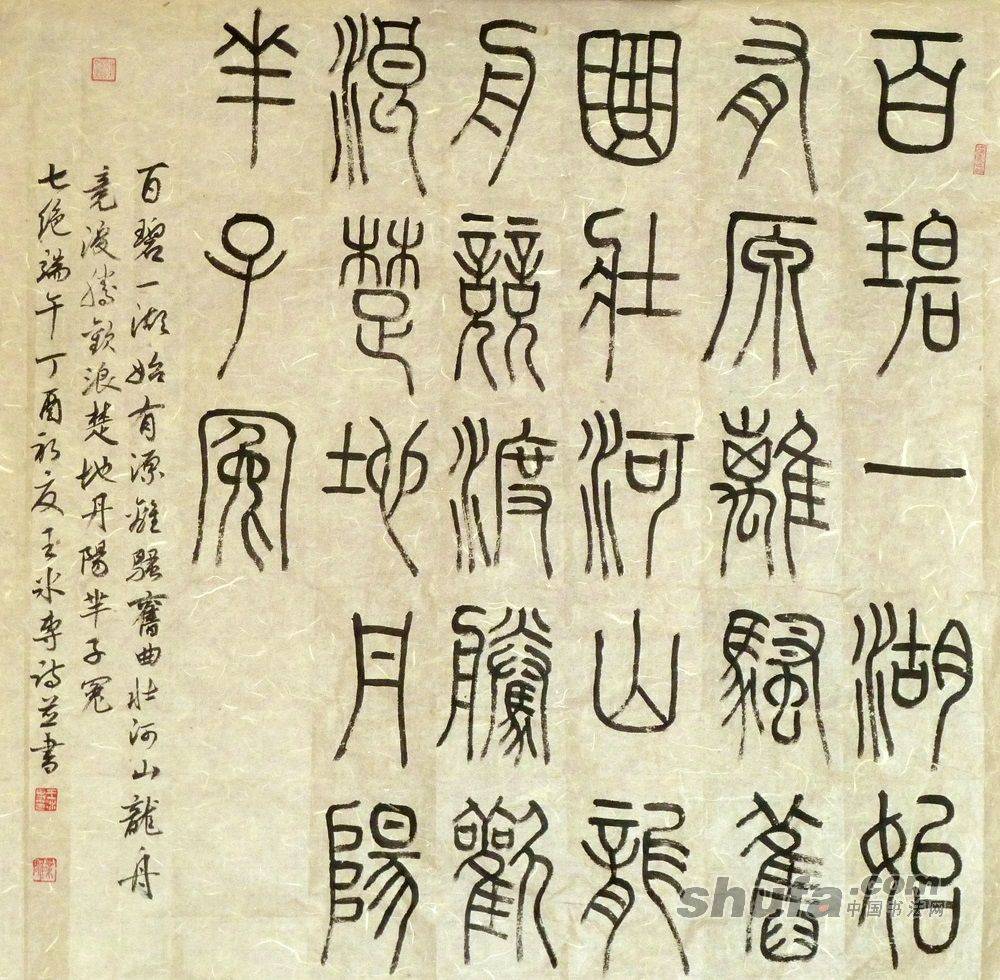 百碧一湖始
有原離騷舊
曲壯河山龍
舟競渡騰歡
浪楚地丹陽
芈子冤
百碧一湖始有源離騷舊曲壯河山龍舟
竞渡騰歡浪楚地丹陽芈子冤
七絶端午丁酉初夏王冰诗並書
shufa.com
中国书法网